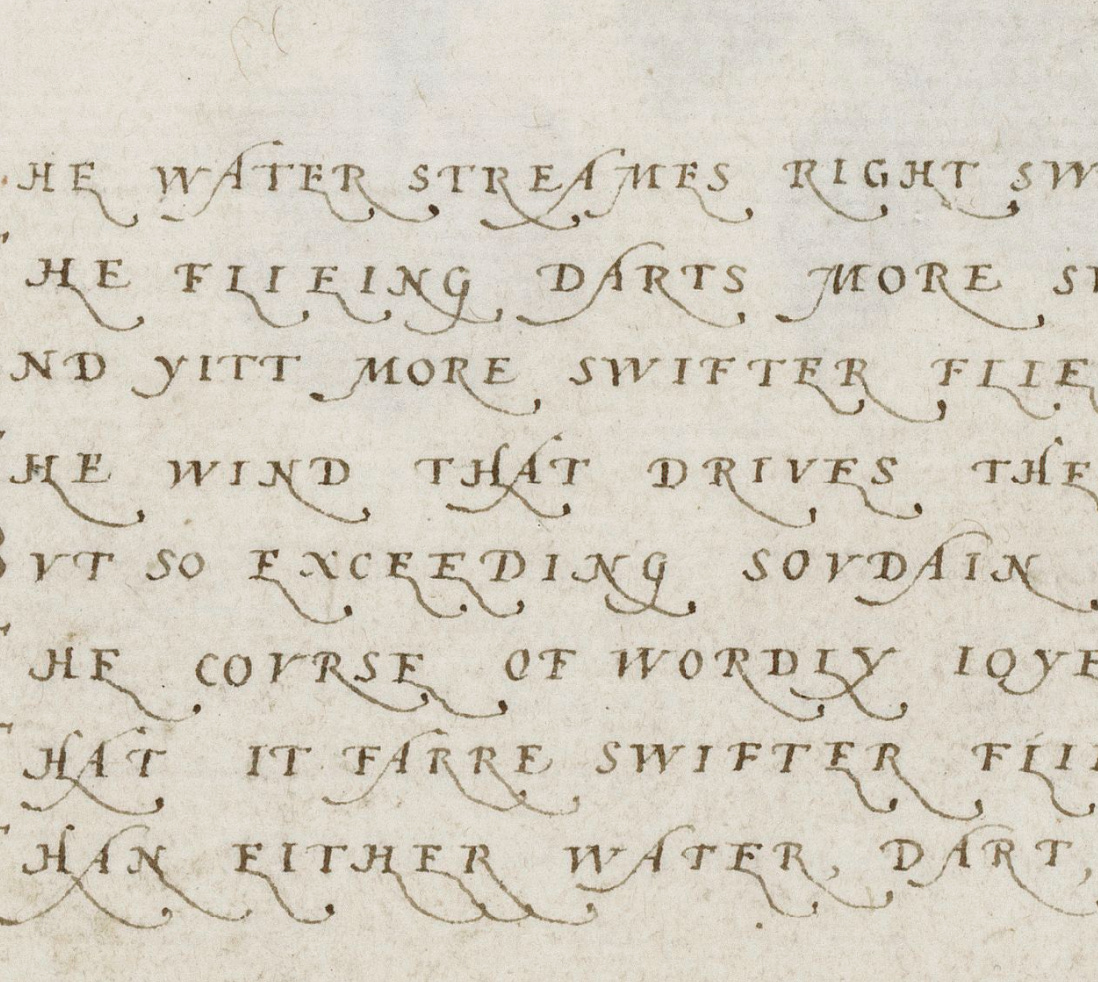 HE WATER STREAMES RIGHT SW
HE FLIEING DARTS MORE S
ND YITT MORE SWIFTER FLIE
HE WIND THAT DRIVES THE
BVT SO EXCEEDING SOVDAIN
HE COVRSE OF WORDLY IOYE
HAT IT FARRE SWIFTER FLI
HAN EITHER WATER, DART,